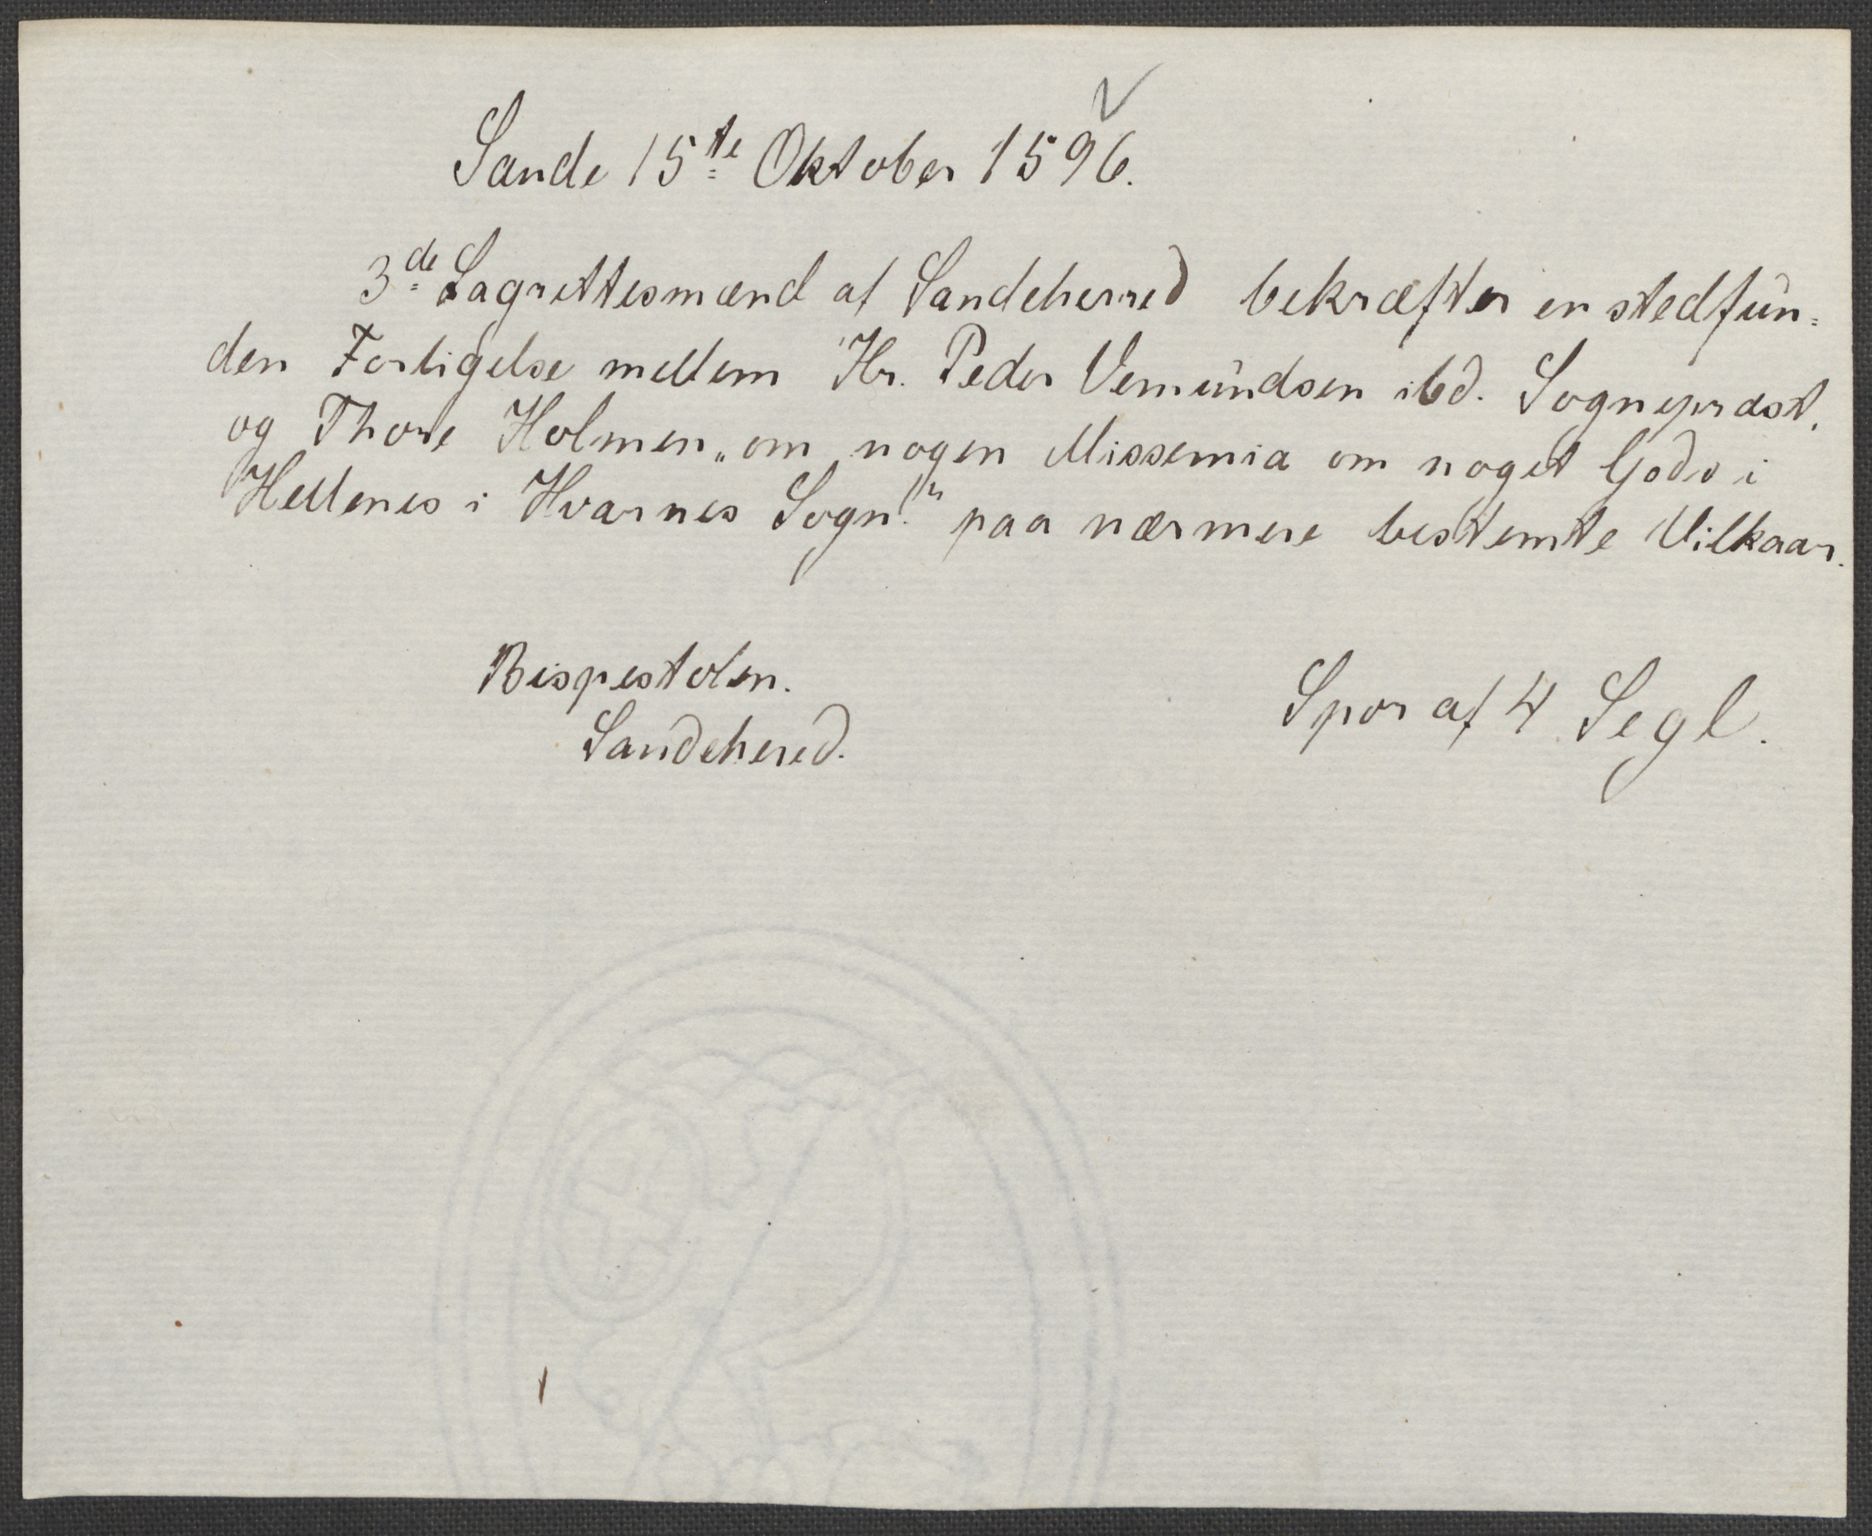 Sande 15te Oktober 1596.
3de Lagrettesmænd af Sandeherred bekræfter en stedfun=
den Forligelse mellem Hr. Peder Vemundsen ibd. Sogneprest,
og Thore Holmen „om nogen Missemia om noget Gods i
Hellenes i Hvarnes Sogn.“ paa nærmere bestemte Vilkaar.
Bispestolen.
Sandehered.
Spor af 4 Segl.